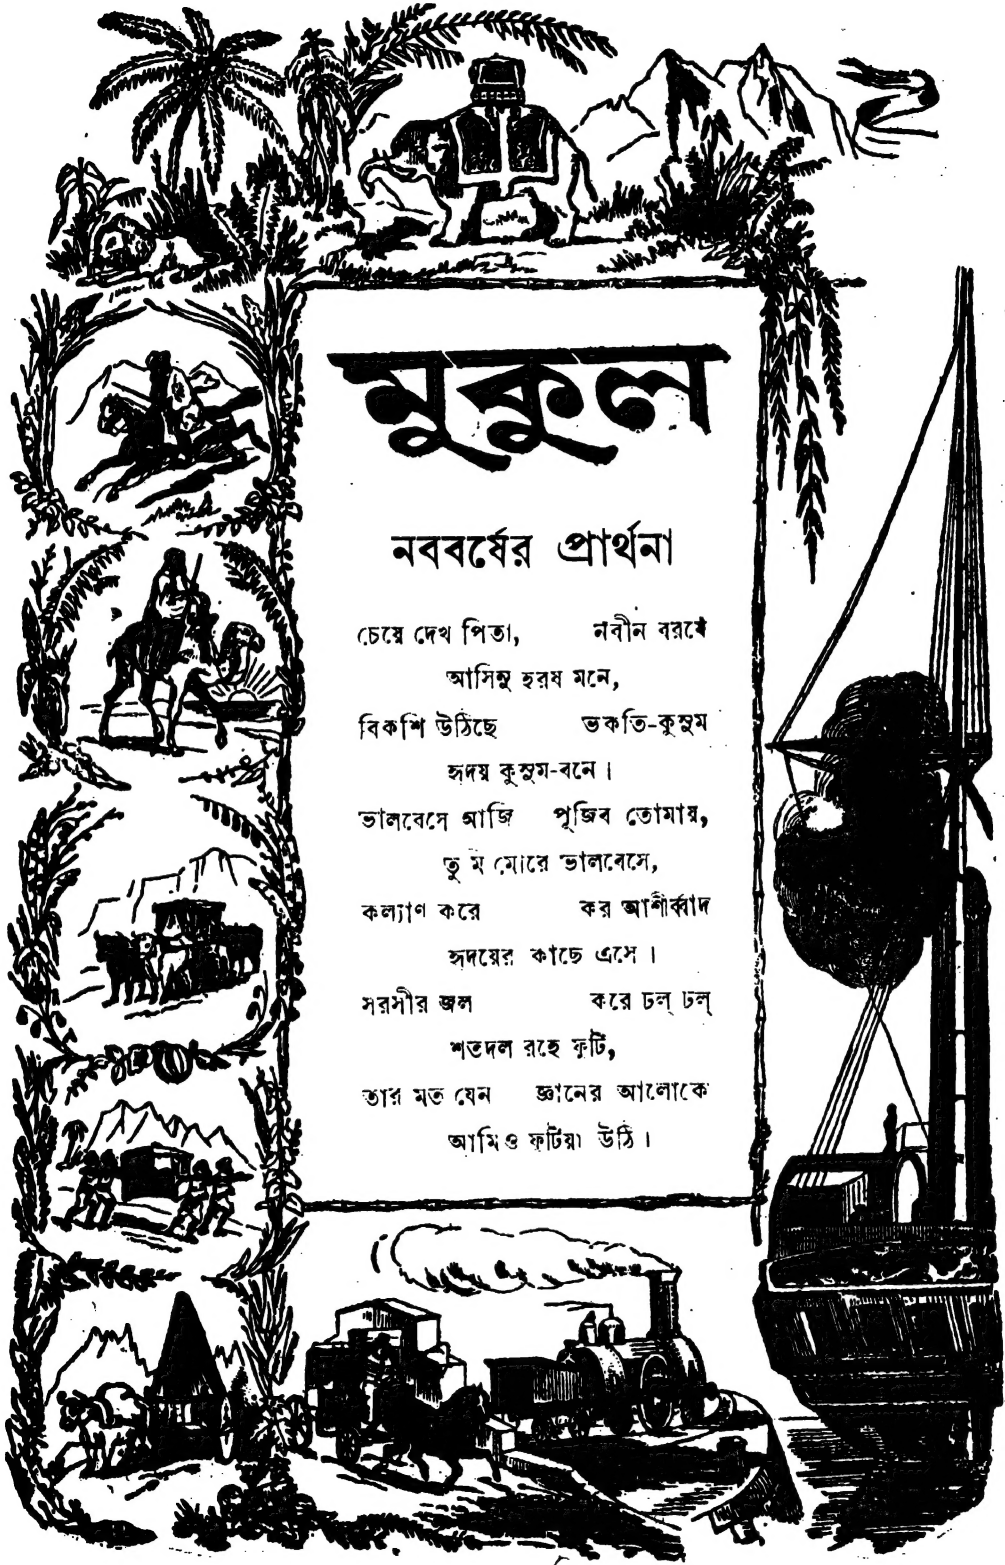 মুকুল
নববর্ষের প্রার্থনা
চেয়ে দেখ পিতা, নবীন বরষে
আসিনু হরষ মনে,
বিকশি উঠিছে ভকতি-কুসুম
হৃদয় কুসুম-বনে।
ভালবেসে আজি পূজিব তোমায়,
তুমি মোরে ভালবেসে,
কল্যাণ করে কর আশীর্ব্বাদ
হৃদয়ের কাছে এসে।
সরসীর জল করে ঢল্ ঢল্
শতদল রহে ফুটি,
তার মত যেন জ্ঞানের আলোকে
আমিও ফুটিয়া উঠি।